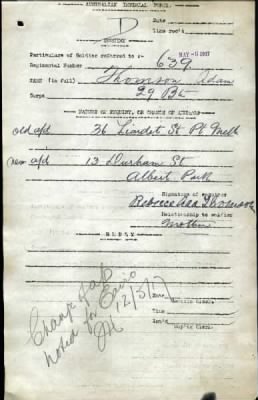 AUSTRALIAN IMPERIAL FORCE.
D
Date
Time rec'd
ENQUIRY
Particulars of Soldier referred to :-
MAY -8 1917
Regimental Number 639
NAME (in full) Thomson Adam
Corps 29 Bn
NATURE OF ENQUIRY, OR CHANGE OF ADDRESS
old a/d 36 Liardet St Pt Melb
new a/d 13 Durham St
Albert Park
Signature of enquirer
Rebecca Thomson
Relationship to soldier
Mother
REPLY
Change of a/d
noted for
12/5/17
Time
Iss'd